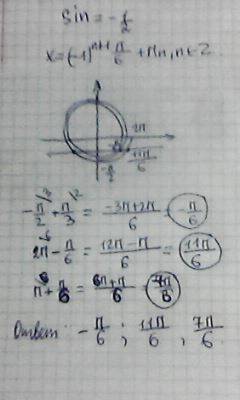 sin = -1/2
x = (-1)^{n+1} π/6 + πn, n ∈ Z.
2π
11π/6
-π/2
-π/2 + π/3 = (-3π+2π)/6 = -π/6
2π - π/6 = (12π-π)/6 = 11π/6
π + π/6 = (6π+π)/6 = 7π/6
Ответ: -π/6 ; 11π/6 , 7π/6.